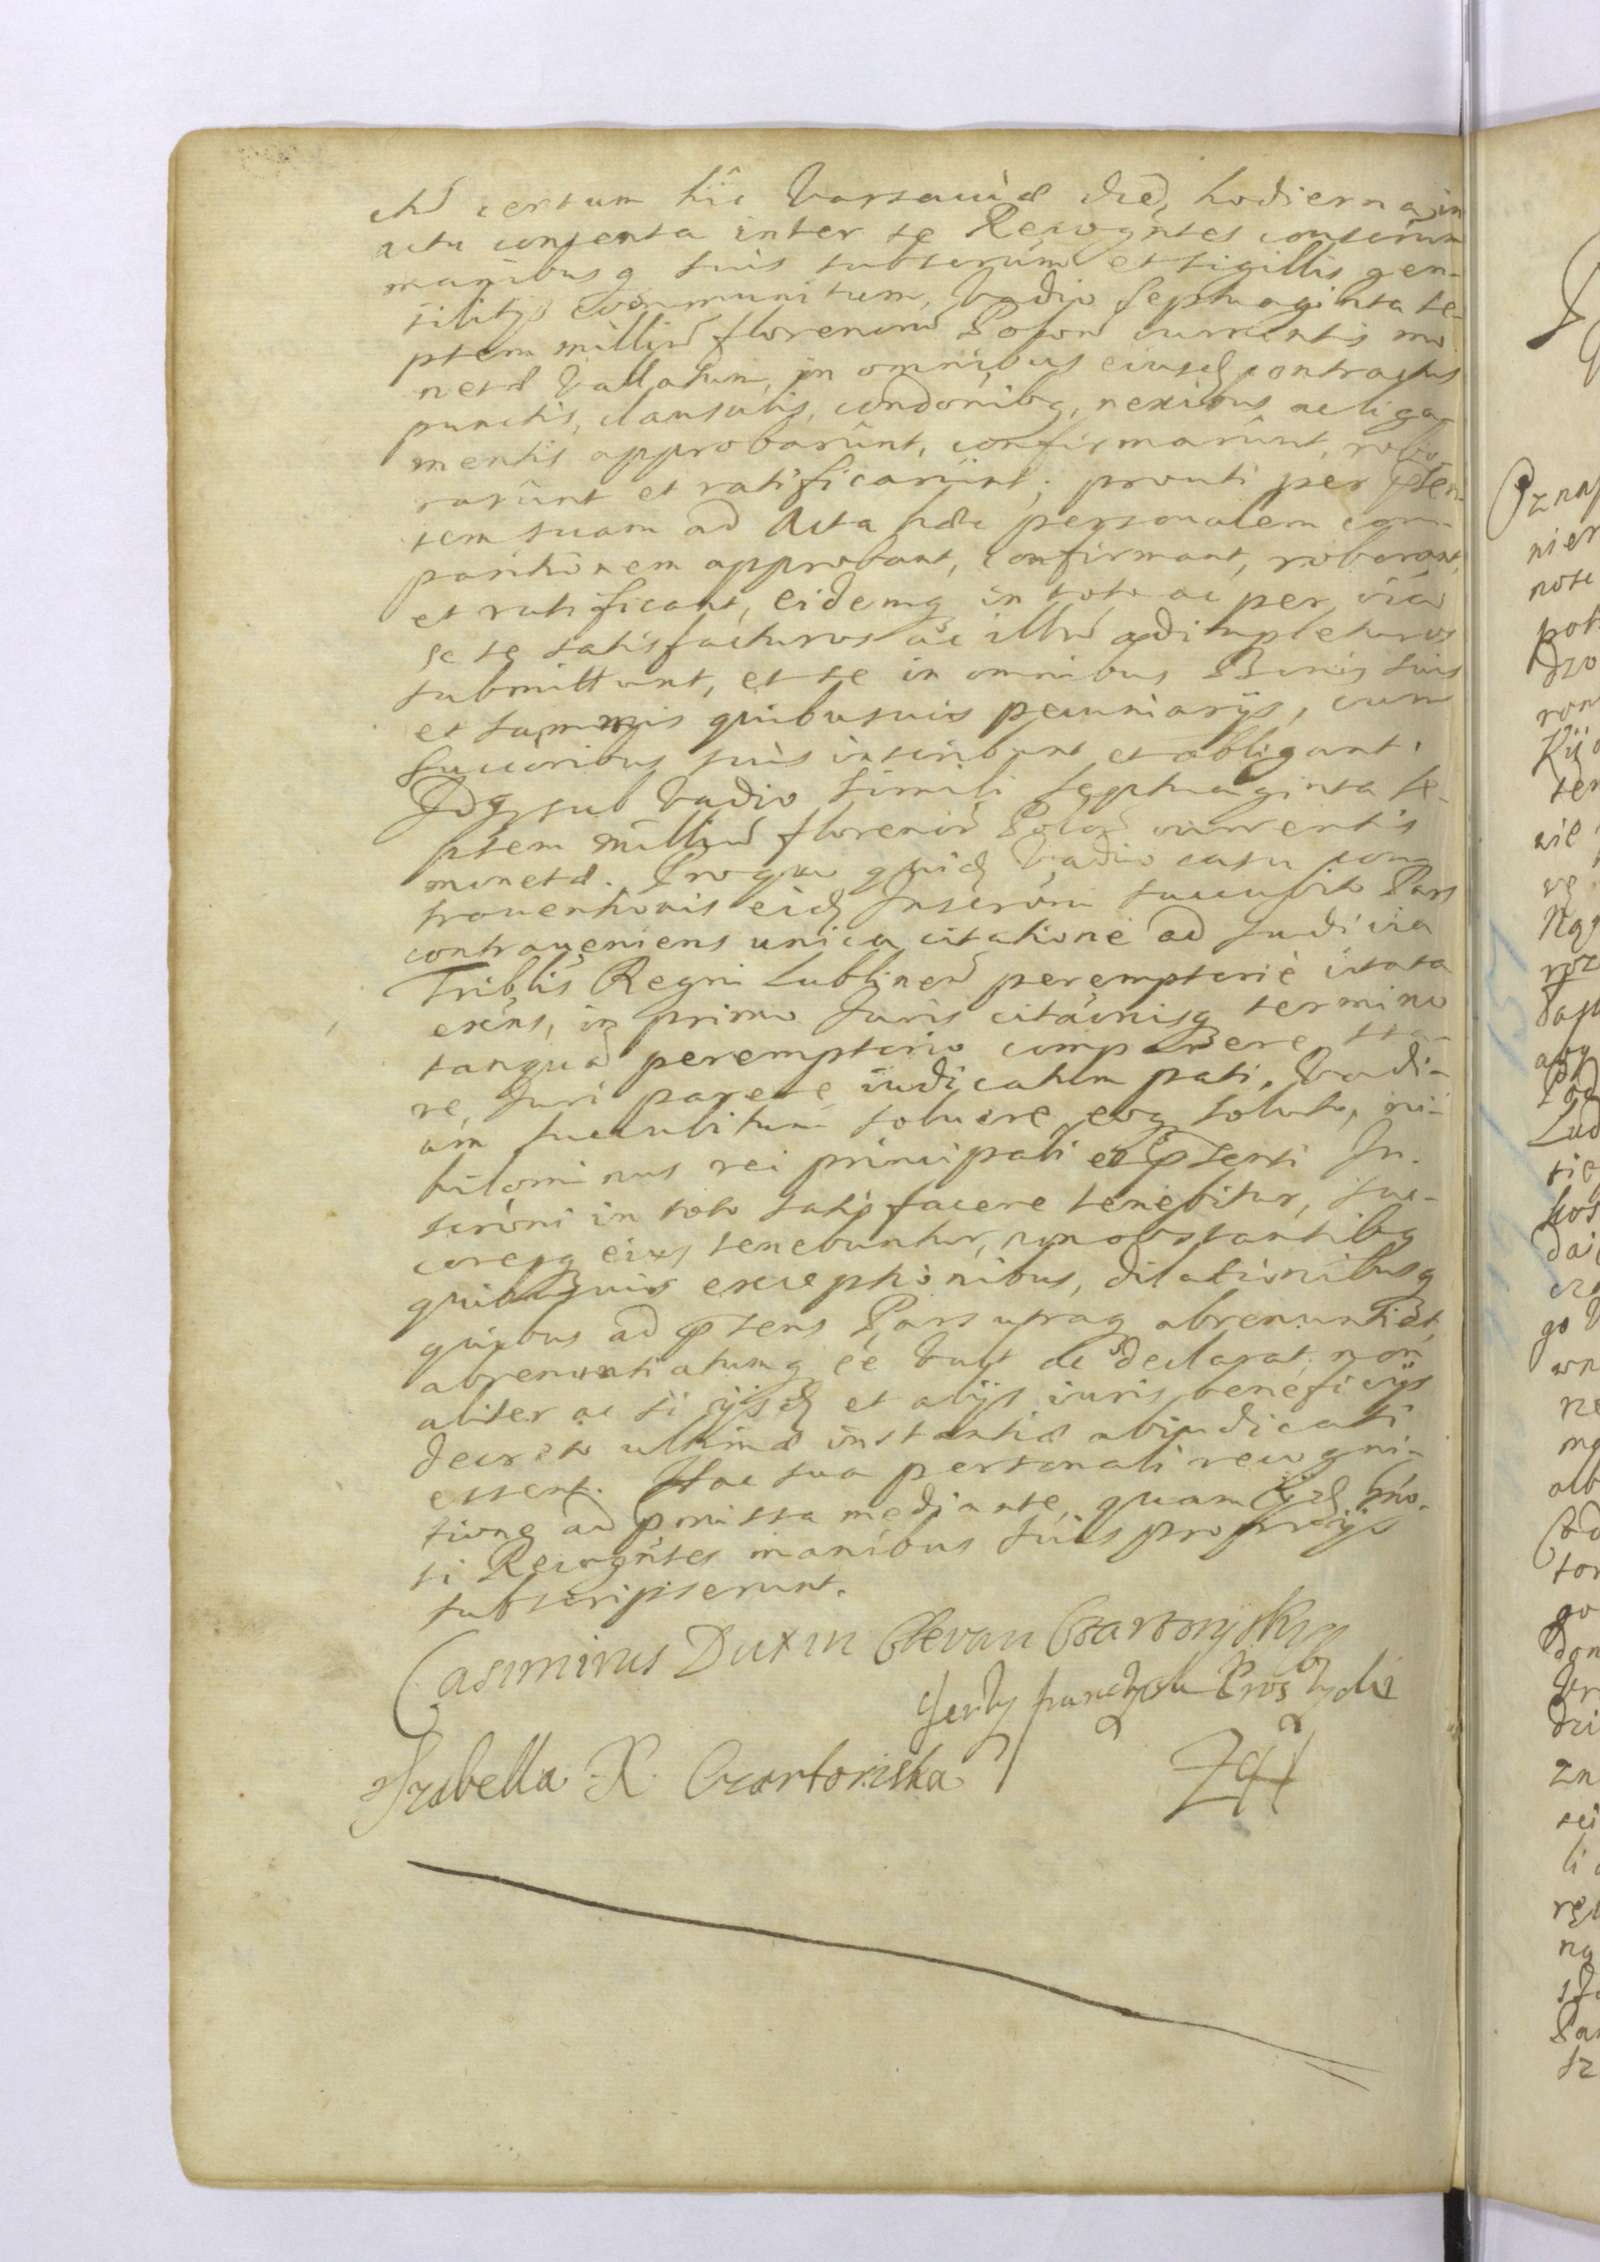 certum hîc Varsauiæ die hodierna in
actu conuenta inter se Recogntes conscriptũ
manibusq suis subscriptũ et sigillis gen-
tilitijs communitum, Vadio septuaginta se-
ptem milliũ florenorũ Polon currentis mo
netæ Vallatum, in omnibus eiusdꝫ contractus
punctis, clausulis, condõnibq, nexibus ac liga-
mentis approbarûnt, confirmarûnt, robo-
rarûnt et ratificarûnt; prouti per pñten-
tem suam ad Acta hæc personalem com-
paritionem approbant, confirmant, roborant,
et ratificant, eidemq in toto ac per oĩa
se se satisfacturos ac illud adimpleturos
submittunt, et se in omnibus Bonis suis
et summis quibusuis pecuniarijs, cum
Succoribus suis inscribunt et obligant.
Idq sub Vadio simili septuaginta se-
ptem milliũ florenorũ Polon currentis
monetæ. Proquo quidꝫ Vadio casu con-
trauentionis eidꝫ Inscrõni succubito Pars
contraueniens unica citatione ad Judicia
Triblis Regni Lublinen peremptoriè citata
exẽns, in primo Juris citãonisq termino
tanquã peremptorio comparere, sta-
re, Juri parere iudicatum pati. Vadi-
um succubitum soluere, eoq soluto, ni-
hilominus rei principali et pñtenti In-
scrõni in toto satisfacere tenebitur, suc-
coresq eius tenebuntur, non obstantibq
quibusuis exceptionibus, dilationibusq
quibus ad pñtens Pars utraq abrenuntiat,
abrenuntiatumq eẽ Vult ac declarat, non
aliter ac si ijsdꝫ et alijs iuris beneficijs
decreto ultimæ instantiæ abiudicati
essent. Hac sua personali recogni-
tione ad pmissa mediante, quam ijdꝫ
ti Recogntes manibus suis proprijs
subscripserunt.
Casimirus Dux in Clevan Czartoryski
Jerzy franciszek
Izabella X. Czartoriska